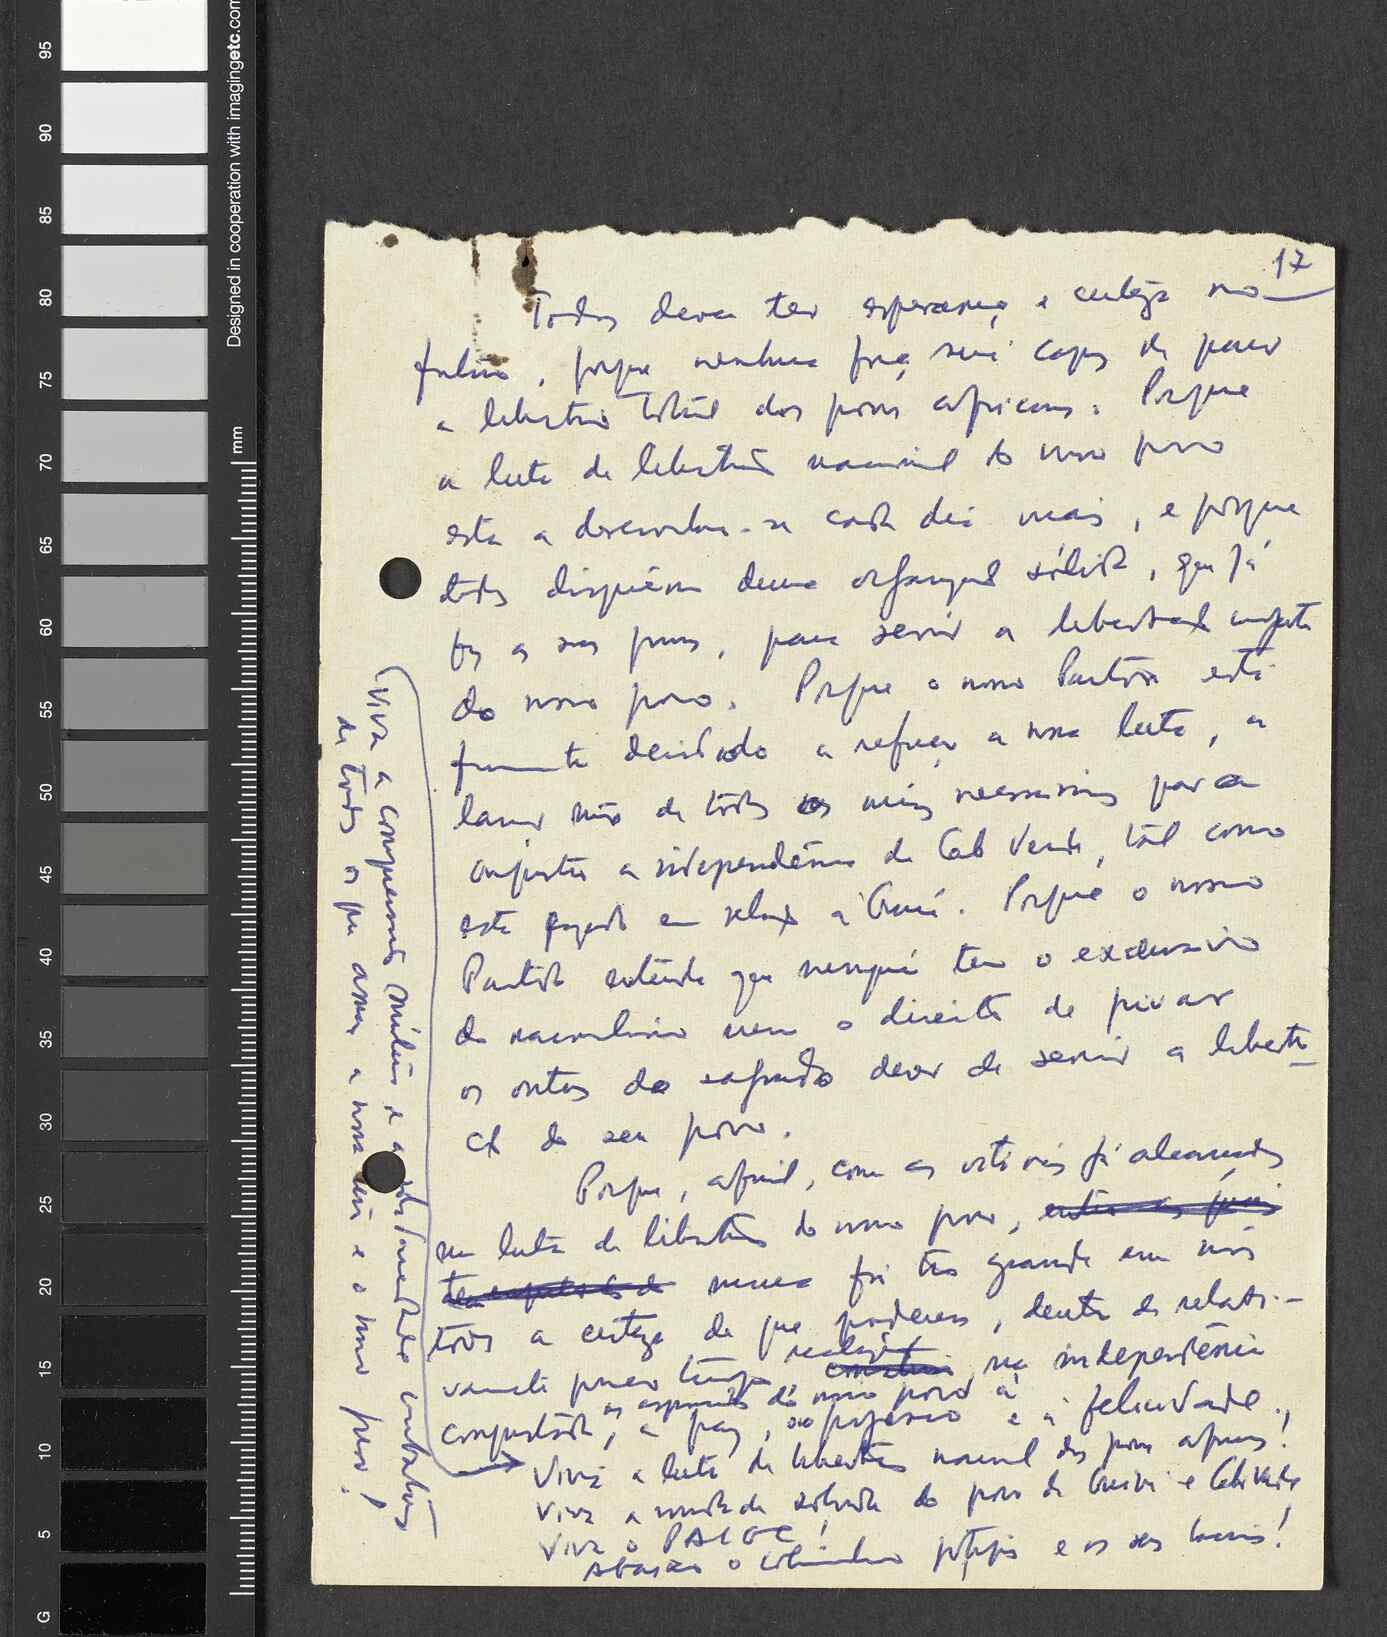 17
Todos devem ter esperança e certeza no
futuro, porque nenhuma força será capaz de parar
a libertação total dos povos africanos. Porque
a luta de libertação nacional do nosso povo
está a desenvolver-se cada dia mais, e porque
todos dispõem duma organização sólida, que já
fez as suas provas, para servir a liberdade
do nosso povo. Porque o nosso Partido está
firmemente decidido a reforçar a nossa luta, a
lançar mão de todos os meios necessários para
conquistar a independência de Cabo Verde, tal como
está fazendo em relação à Guiné. Porque o nosso
Partido entende que ninguém tem o exclusivo
do nacionalismo nem o direito de privar
os outros do sagrado dever de servir a liberta-
ção do seu povo.
Porque, afinal, com as vitórias já alcançadas
na luta de libertação do nosso povo, entre as quais
nunca foi tão grande em nós
todos a certeza de que poderemos, dentro de relati-
vamente pouco tempo, realizar na independência
as aspirações do nosso povo à
conquistada, a paz, ao progresso e à felicidade.
Viva a luta de libertação nacional dos povos africanos!
Viva a unidade sólida do povo da Guiné e Cabo Verde
Viva o PAIGC!
Abaixo o colonialismo português e os seus lacaios!
Viva a compreensão mútua e a solidariedade combativa
de todos os que amam a nossa terra e o nosso povo!
Designed in cooperation with imagingetc.com
mm
95
90
85
80
75
70
65
60
55
50
45
40
35
30
25
20
15
10
5
G